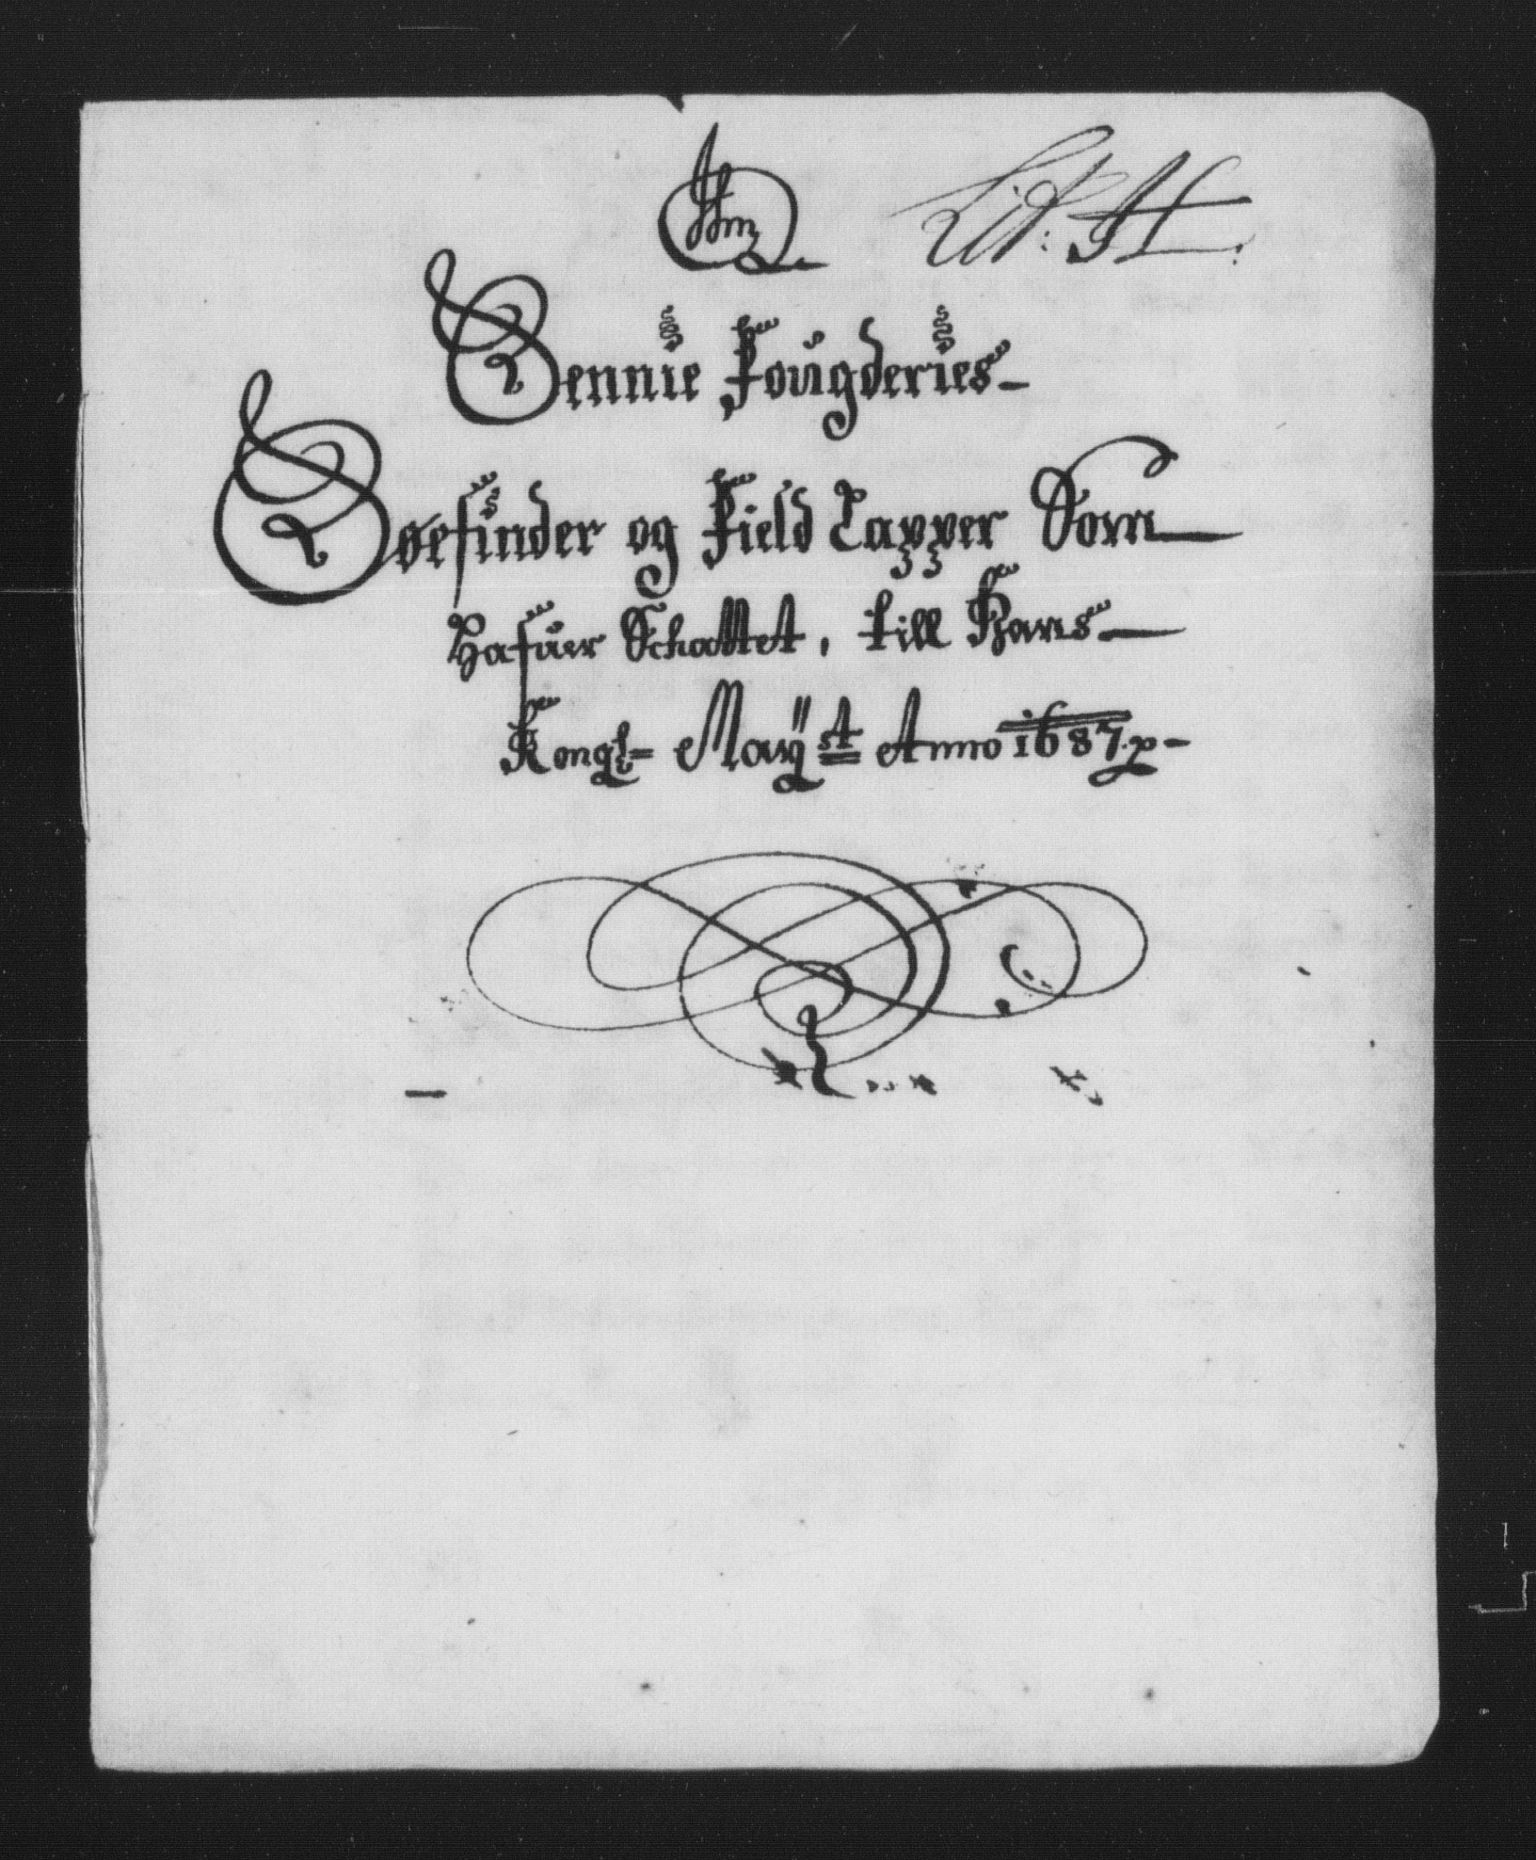 Lit: H.
Sennie Fougderies
Søefinder og Field Lapper Som
Hafuer Schattet, till Hans
Kongl= Mayst Anno 1687.